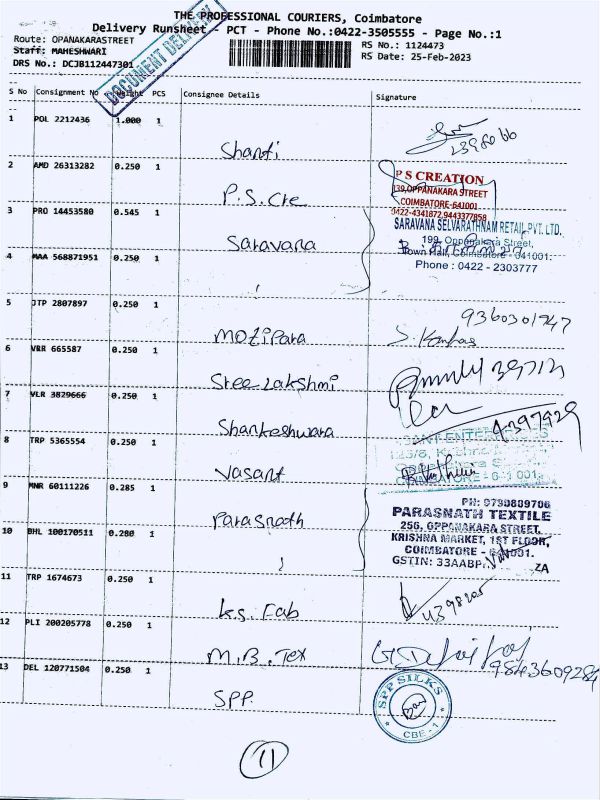 THE PROFESSIONAL COURIERS, Coimbatore
Delivery Runsheet - PCT - Phone No.:0422-3505555 - Page No.:1
Route: OPANAKARASTREET
RS No.: 1124473
Staff: MAHESHWARI
RS Date: 25-Feb-2023
DRS No.: DCJB112447301
DOCUMENT DELIVERY
S No Consignment No Weight PCS Consignee Details Signature
1 POL 2212436 1.000 1 Shanti
2398066
2 AMD 26313282 0.250 1 P.S. Cre
P S CREATION
139, OPPANAKARA STREET
COIMBATORE-641001
0422-4341872,9443377858
3 PRO 14453580 0.545 1 Saravana
SARAVANA SELVARATHNAM RETAIL PVT. LTD.
199, Oppanakara Street,
Town Hall, Coimbatore - 641001.
Phone : 0422 - 2303777
4 MAA 568871951 0.250 1
5 JTP 2807897 0.250 1 Motipara
9360301747
6 VRR 665587 0.250 1 Sree Lakshmi
7 VLR 3829666 0.250 1 Shankeshwara
4397929
8 TRP 5365554 0.250 1 Vasant
SANT ENTERPRISES
9 MNR 60111226 0.285 1 Parasnath
PH: 9790809706
PARASNATH TEXTILE
256, OPPANAKARA STREET,
KRISHNA MARKET, 1ST FLOOR,
COIMBATORE - 641001.
GSTIN: 33AABP ZA
10 BHL 100170511 0.280 1
11 TRP 1674673 0.250 1 k.s. Fab
4398205
12 PLI 200205778 0.250 1 M.B. Tex
9843609284
13 DEL 120771504 0.250 1 SPP.
SPP SILKS
* CBE - 1 *
11